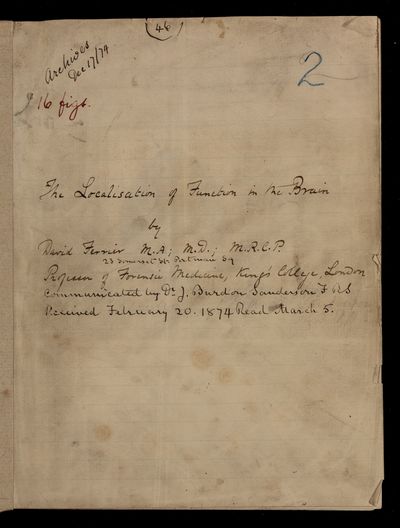 46
Archives
Dec 17/74
2
16 figs.
The Localisation of Function in the Brain
by
David Ferrier M.A; M.D.; M.R.C.P.
23 Somerset St. Portman Sq
Professor of Forensic Medicine, King's College, London
Communicated by Dr J. Burdon Sanderson F RS
Received February 20. 1874 Read March 5.